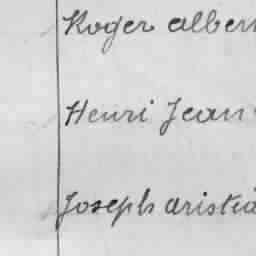 Roger alber
Henri Jean
Joseph aristid